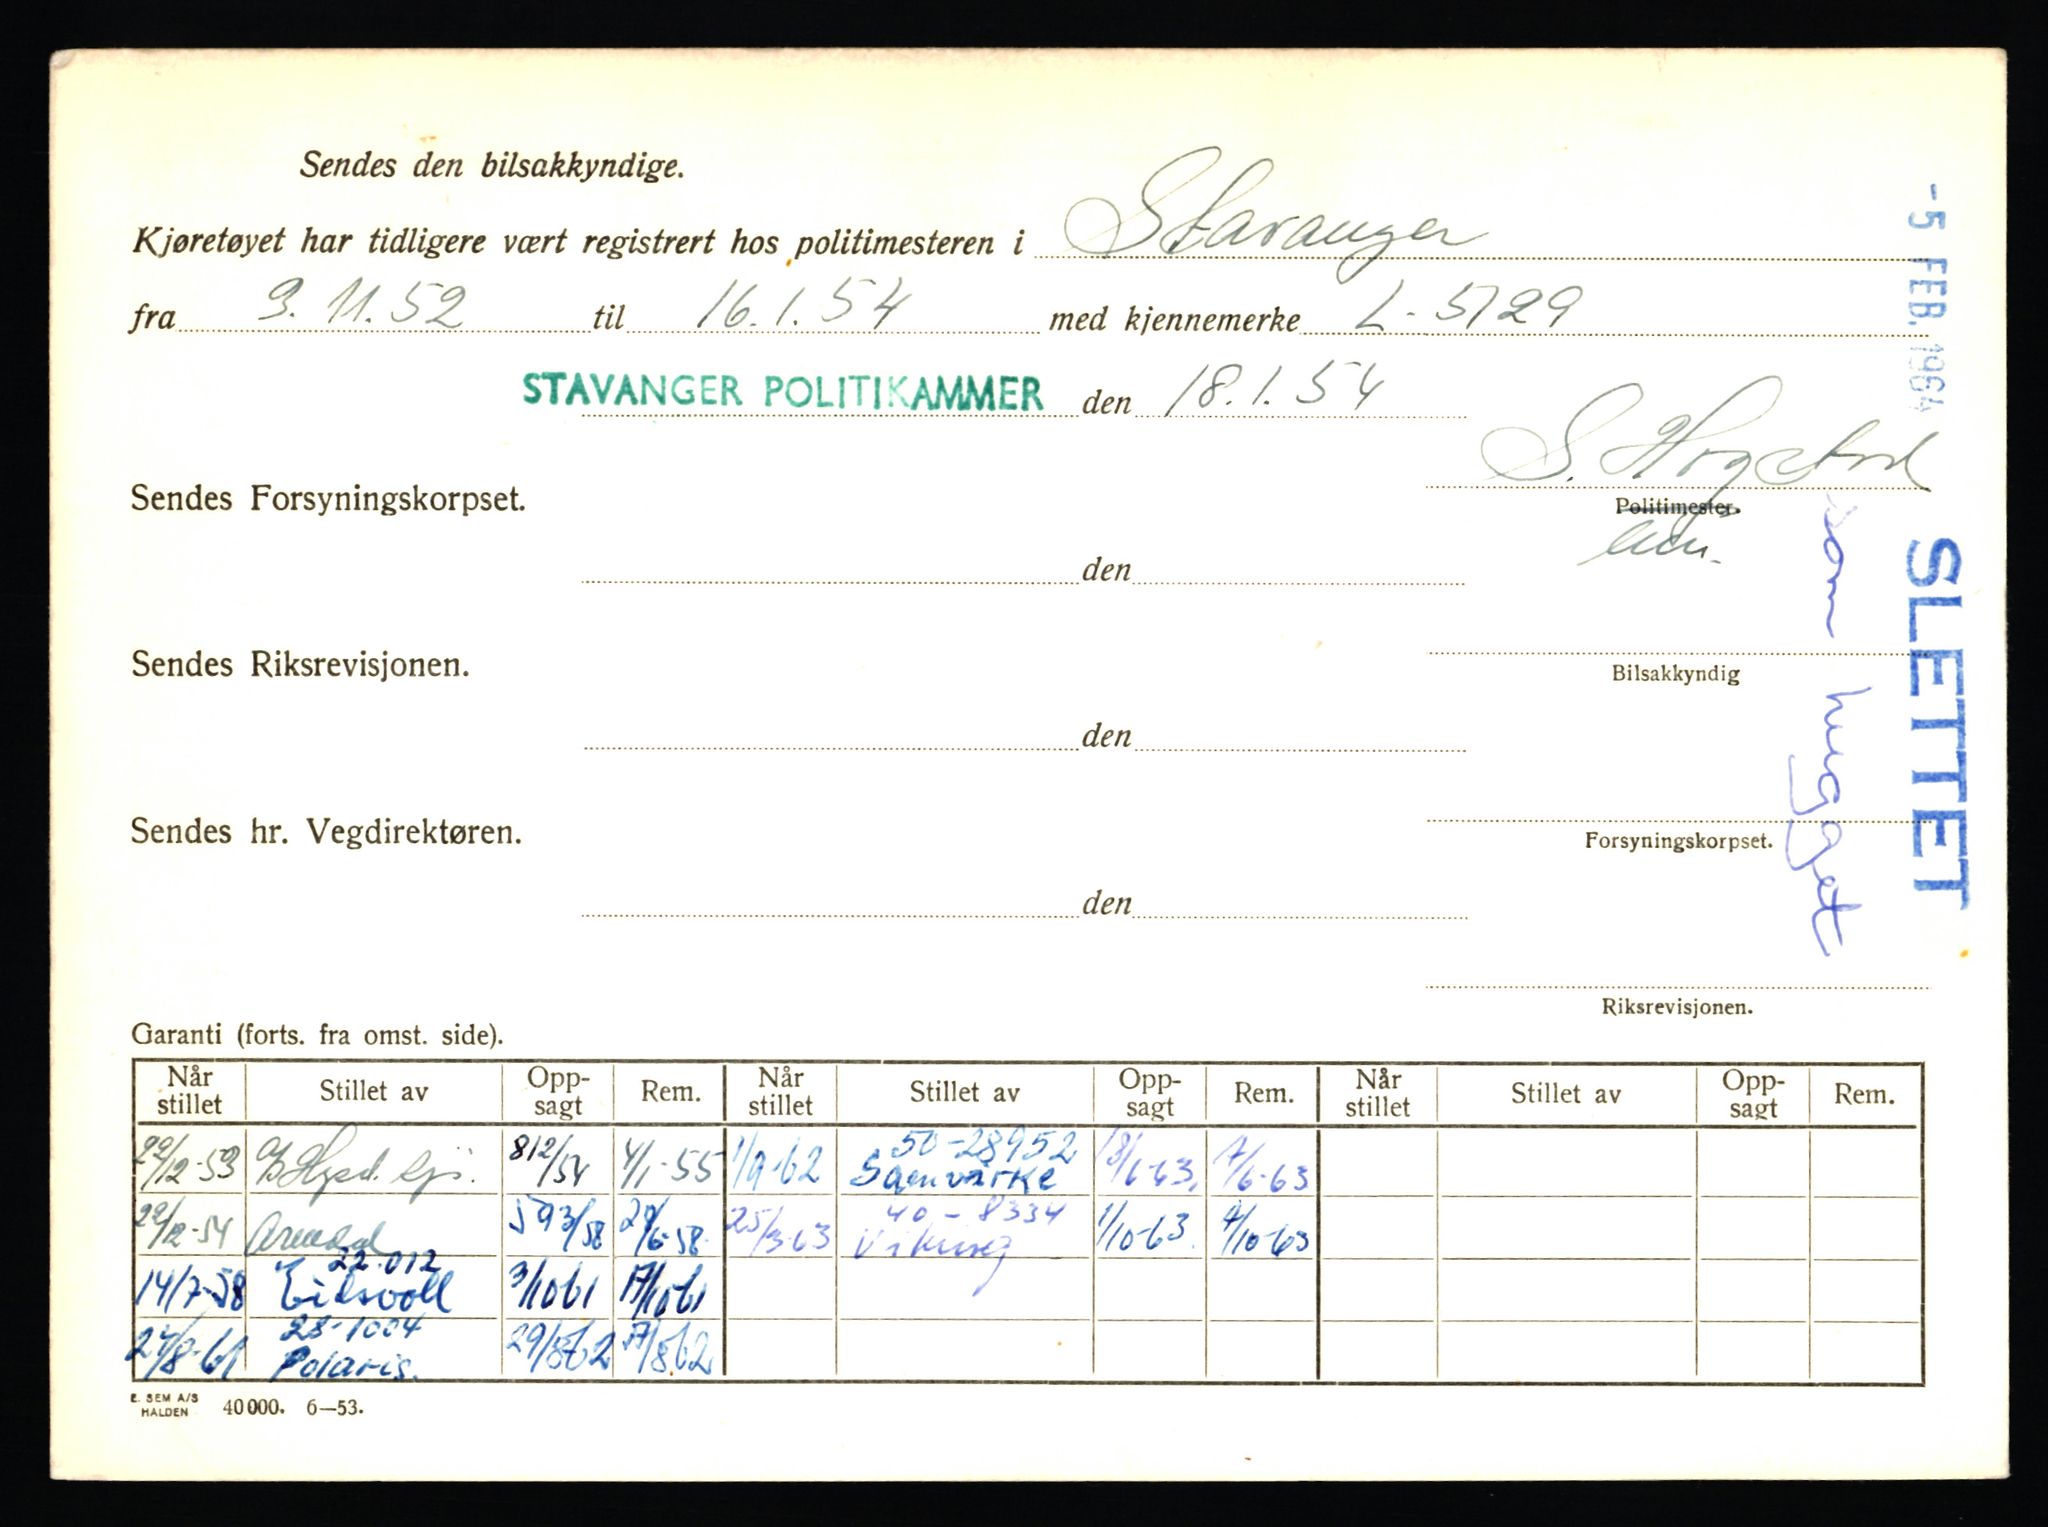 Sendes den bilsakkyndige.
Kjøretøyet har tidligere vært registrert hos politimesteren i Stavanger
fra 3.11.52 til 16.1.54 med kjennemerke L-5129
STAVANGER POLITIKAMMER den 18.1.54
Sendes Forsyningskorpset.
Politimester.
den
Sendes Riksrevisjonen.
Bilsakkyndig
den
Sendes hr. Vegdirektøren.
Forsyningskorpset.
den
Riksrevisjonen.
-5 FEB. 1964
SLETTET
som hugget
Garanti (forts. fra omst. side).
Når stillet Stillet av Opp-sagt Rem. Når stillet Stillet av Opp-sagt Rem. Når stillet Stillet av Opp-sagt Rem.
22/12-53 812/54 4/1-55 1/9-62 50-28952 Samvirke 18/6-63. 7/6-63
22/12-54 Arendal 593/58 1/10-63. 4/10-63 25/3-63 40-8334 Viking
14/7-58 22.012 Eidsvoll 3/10 61 17/10 61
28-1004 Polaris. 29/8 62
E. SEM A/S HALDEN 40000. 6—53.